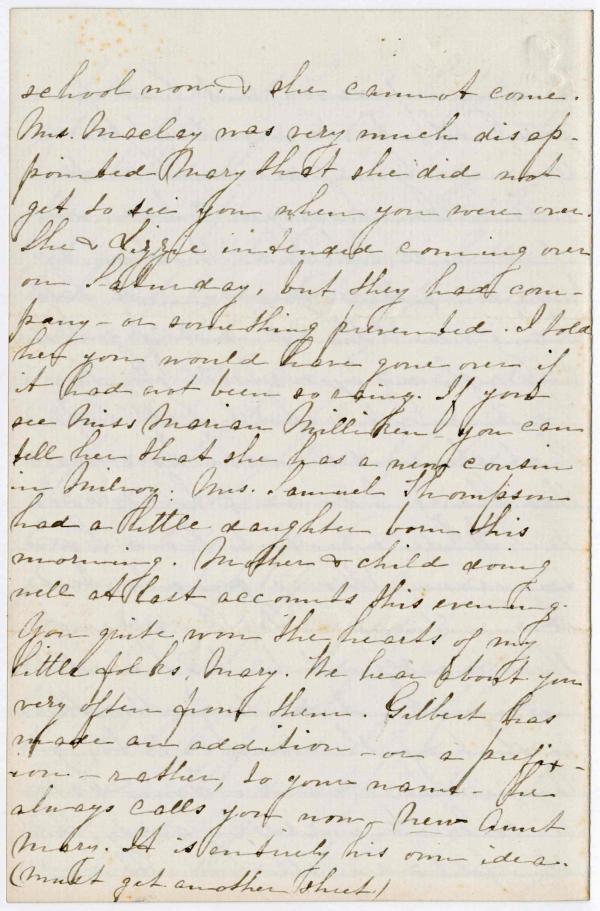 school now, & she cannot come.
Mrs. Maclay was very much disap-
pointed Mary that she did not
get to see you when you were over.
She & Lizzie intended coming over
on Saturday, but they had com-
pany - or something prevented. I told
her you would have gone over if
it had not been so rainy. If you
see Miss Marian Milliken - you can
tell her that she has a new cousin
in Milroy. Mrs. Samuel Thompson
had a little daughter born this
morning. Mother & child doing
well at last accounts this evening.
You quite won the hearts of my
little folks, Mary. We hear about you
very often from them. Gilbert has
made an addition - or a prefix-
ion - rather, to your name - he
always calls you now - New Aunt
Mary. It is entirely his own idea.
(must get another sheet)